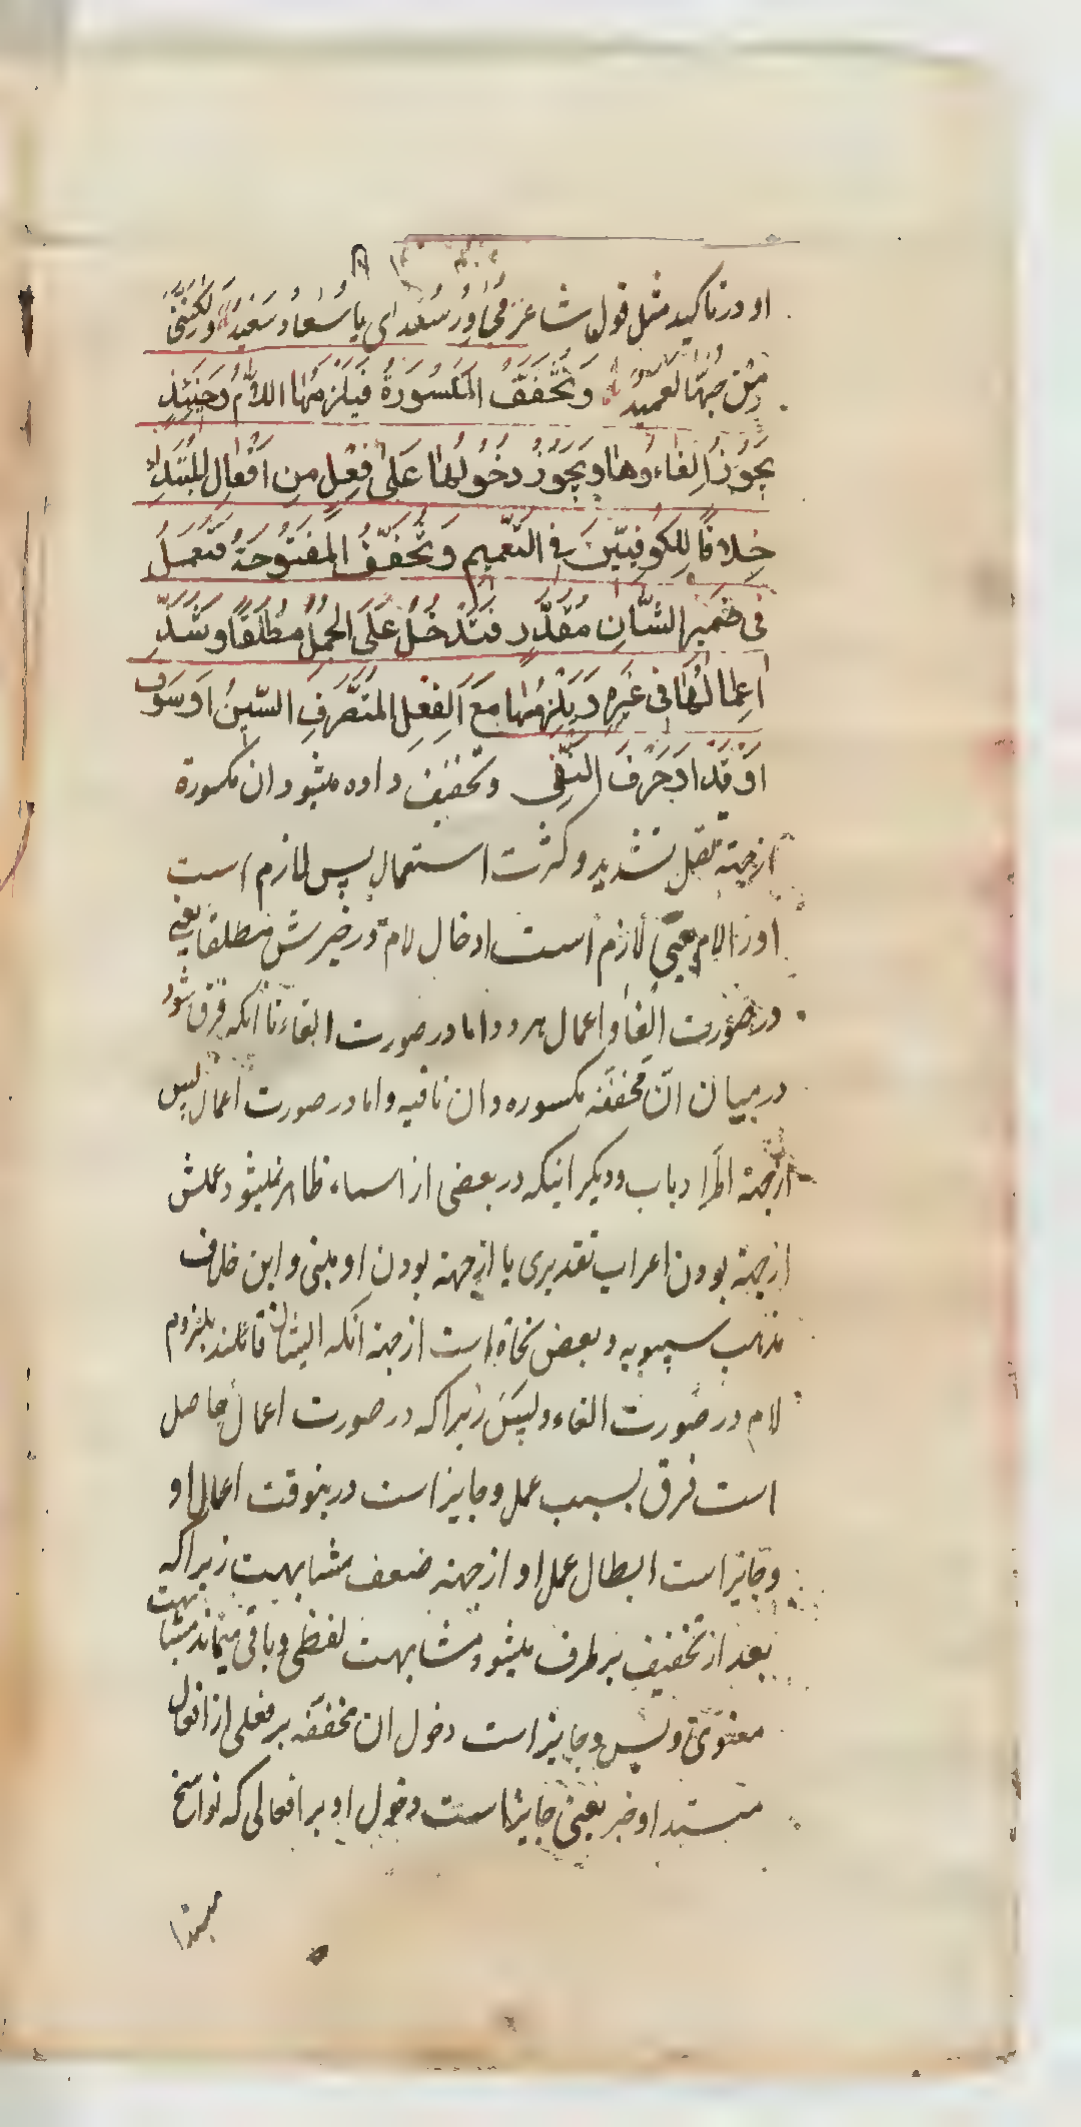 او در تاکید مثل قول شاعر مجاور سعد ای یا سعاد سعید ولکننی
من حبها لعمید وَتُخَفَّفُ المَکسُورَةُ فَیَلزَمُهَا اللَّامُ وَحِینَئِذٍ
یَجُوزُ اِلغَاءُوهَا وَیَجُوزُ دُخُولُهَا عَلَی فِعْلٍ مِن اَفْعَالِ المُبْتَدَاءِ
خِلَافًا لِلکُوفِیّینَ فِی التَّعْمِیمِ وَتُخَفَّفُ المَفتُوحَةُ فَتَعمَلُ
فی ضَمیرِ الشَّانِ مُقَدَّرٍ فَتَدْخُلُ عَلَی الجُمَلِ مُطلَقًا وَشَذَّ
اِعمَالُهَا فی غَیرِهِ وَیَلْزَمُهَا مَعَ الفِعْلِ المُتَصَرِّفِ السّینُ اَو سَوفَ
اَوْ قَدْ اَو حَرفُ النَّفی وتخفیف داده میشود ان مکسورة
از جهته ثقل تشدید و کثرت استعمال پس لازم است
اورا لام یعنی لازم است ادخال لام در خبرش مطلقا یعنی
در صورت الغا و اعمال هر دو اما در صورت الغاء تا انکه فرق شود
در میان انّ مخففه مکسوره و ان نافیه و اما در صورت اعمال پس
از جهته اطراد باب و دیگر اینکه در بعضی از اسماء ظاهر نمیشود عملش
از جهته بودن اعراب تقدیری یا از جهته بودن او مبنی و این خلاف
مذهب سیبویه و بعض نحاة است از جهته انکه ایشان قائلند بلزوم
لام در صورت الغاء و بس زیرا که در صورت اعمال حاصل
است فرق بسبب عمل و جایز است درینوقت اعمال او
و جایز است ابطال عمل او از جهته ضعف مشابهت زیرا که
بعد از تخفیف بر طرف میشود مشابهت لفظی و باقی میماند مشابهت
معنوی و بس و جایز است دخول ان مخففه بر فعلی از افعال
مبتدا و خبر یعنی جایز است دخول او بر افعالی که نواسخ
مبتدا